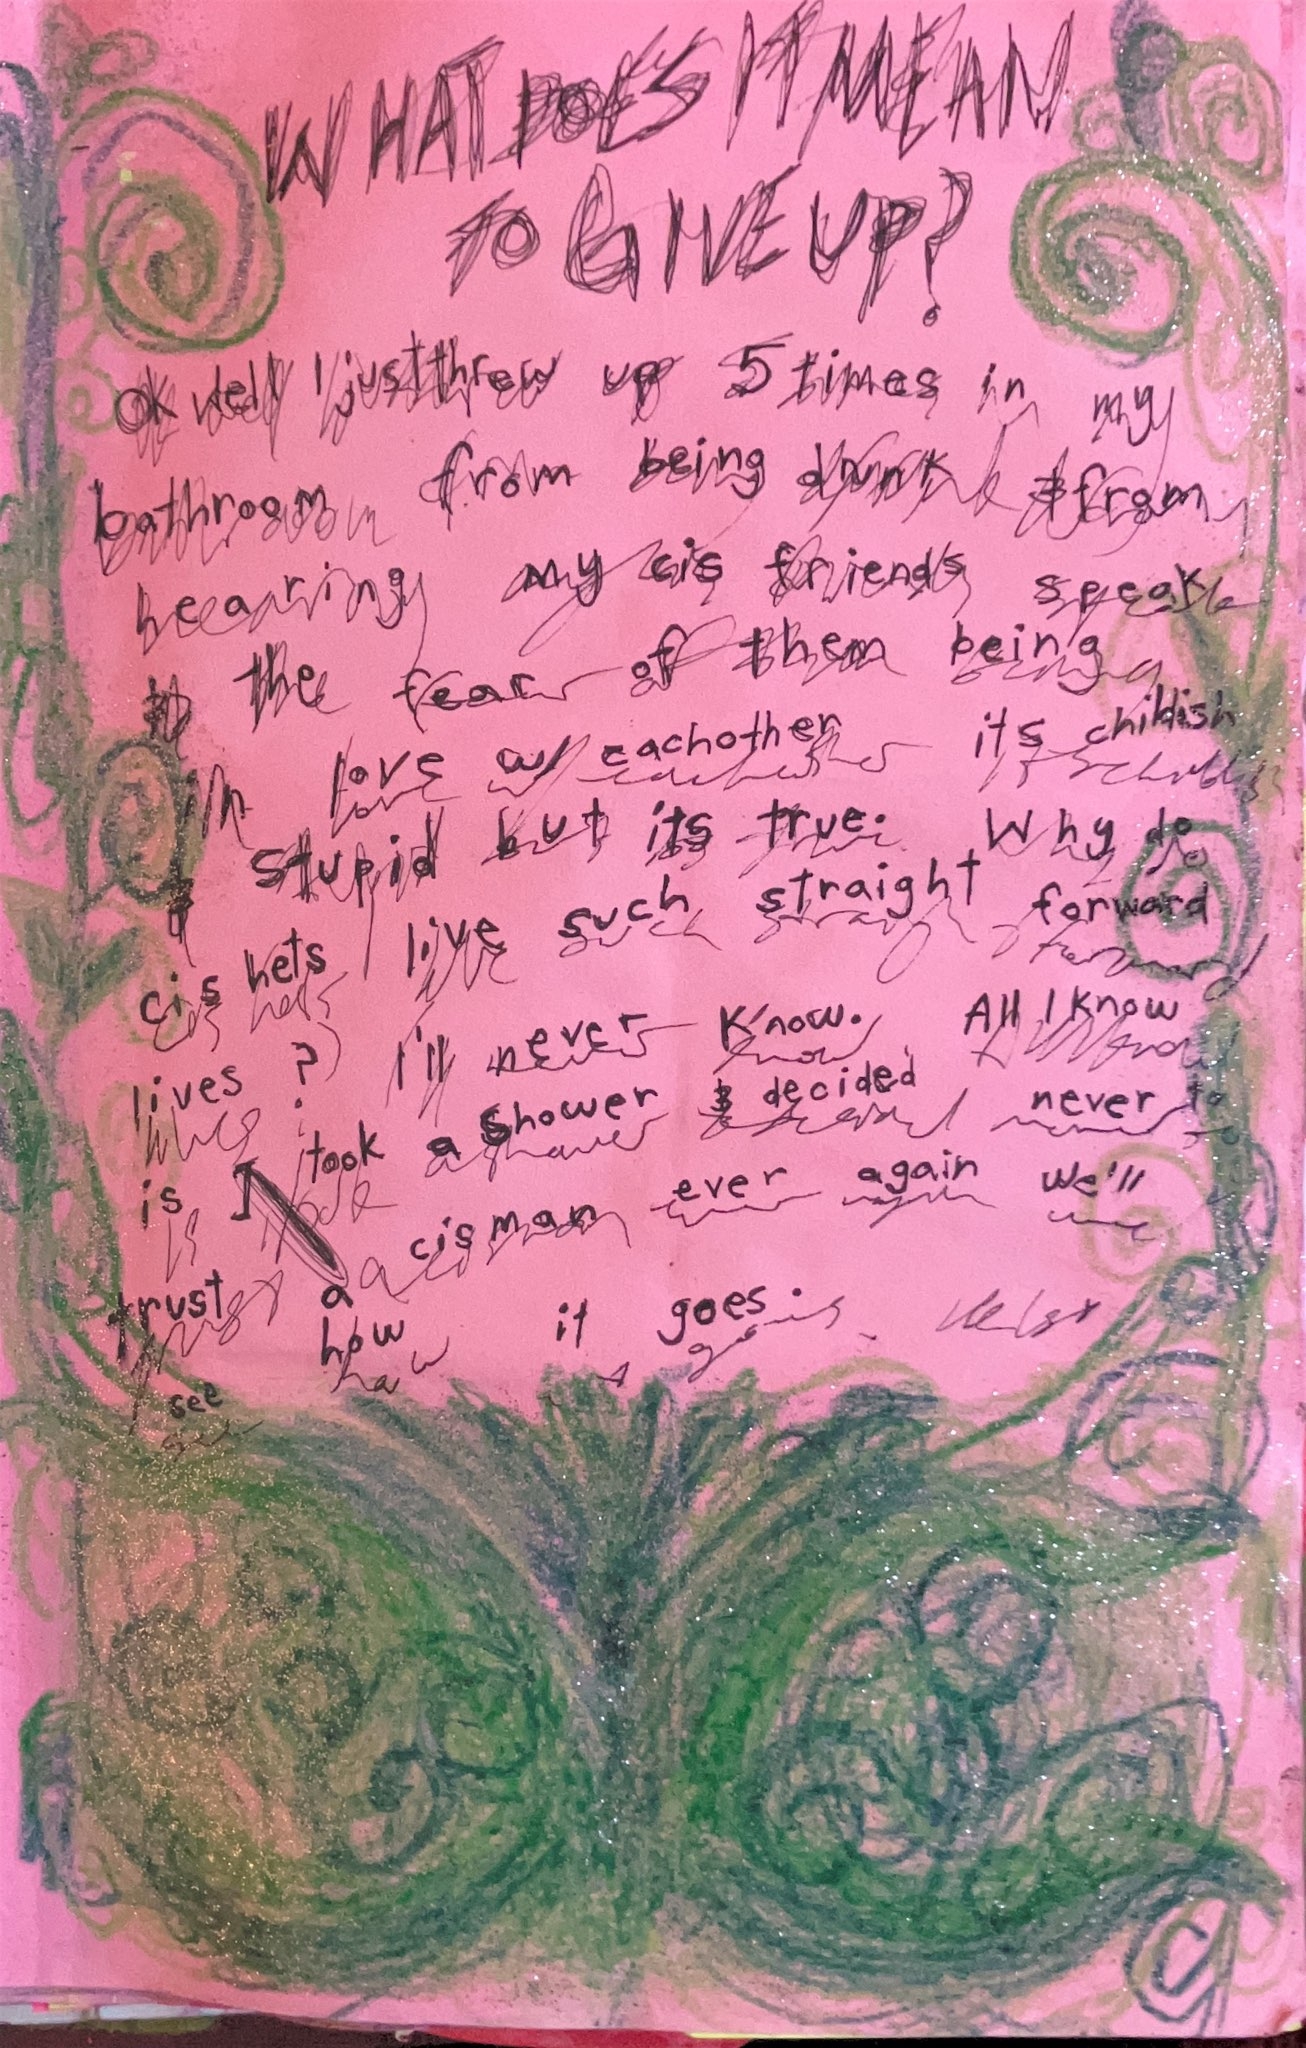 WHAT DOES IT MEAN
TO GIVE UP?
OK well I just threw up 5 times in my
bathroom from being drunk & from
hearing my cis friends speak
the fear of them being
in love w/ eachother its childish
& stupid but its true. Why do
cis hets live such straight forward
lives? I'll never know. All I know
is I took a shower & decided never to
trust a cis man ever again we'll
see how it goes.